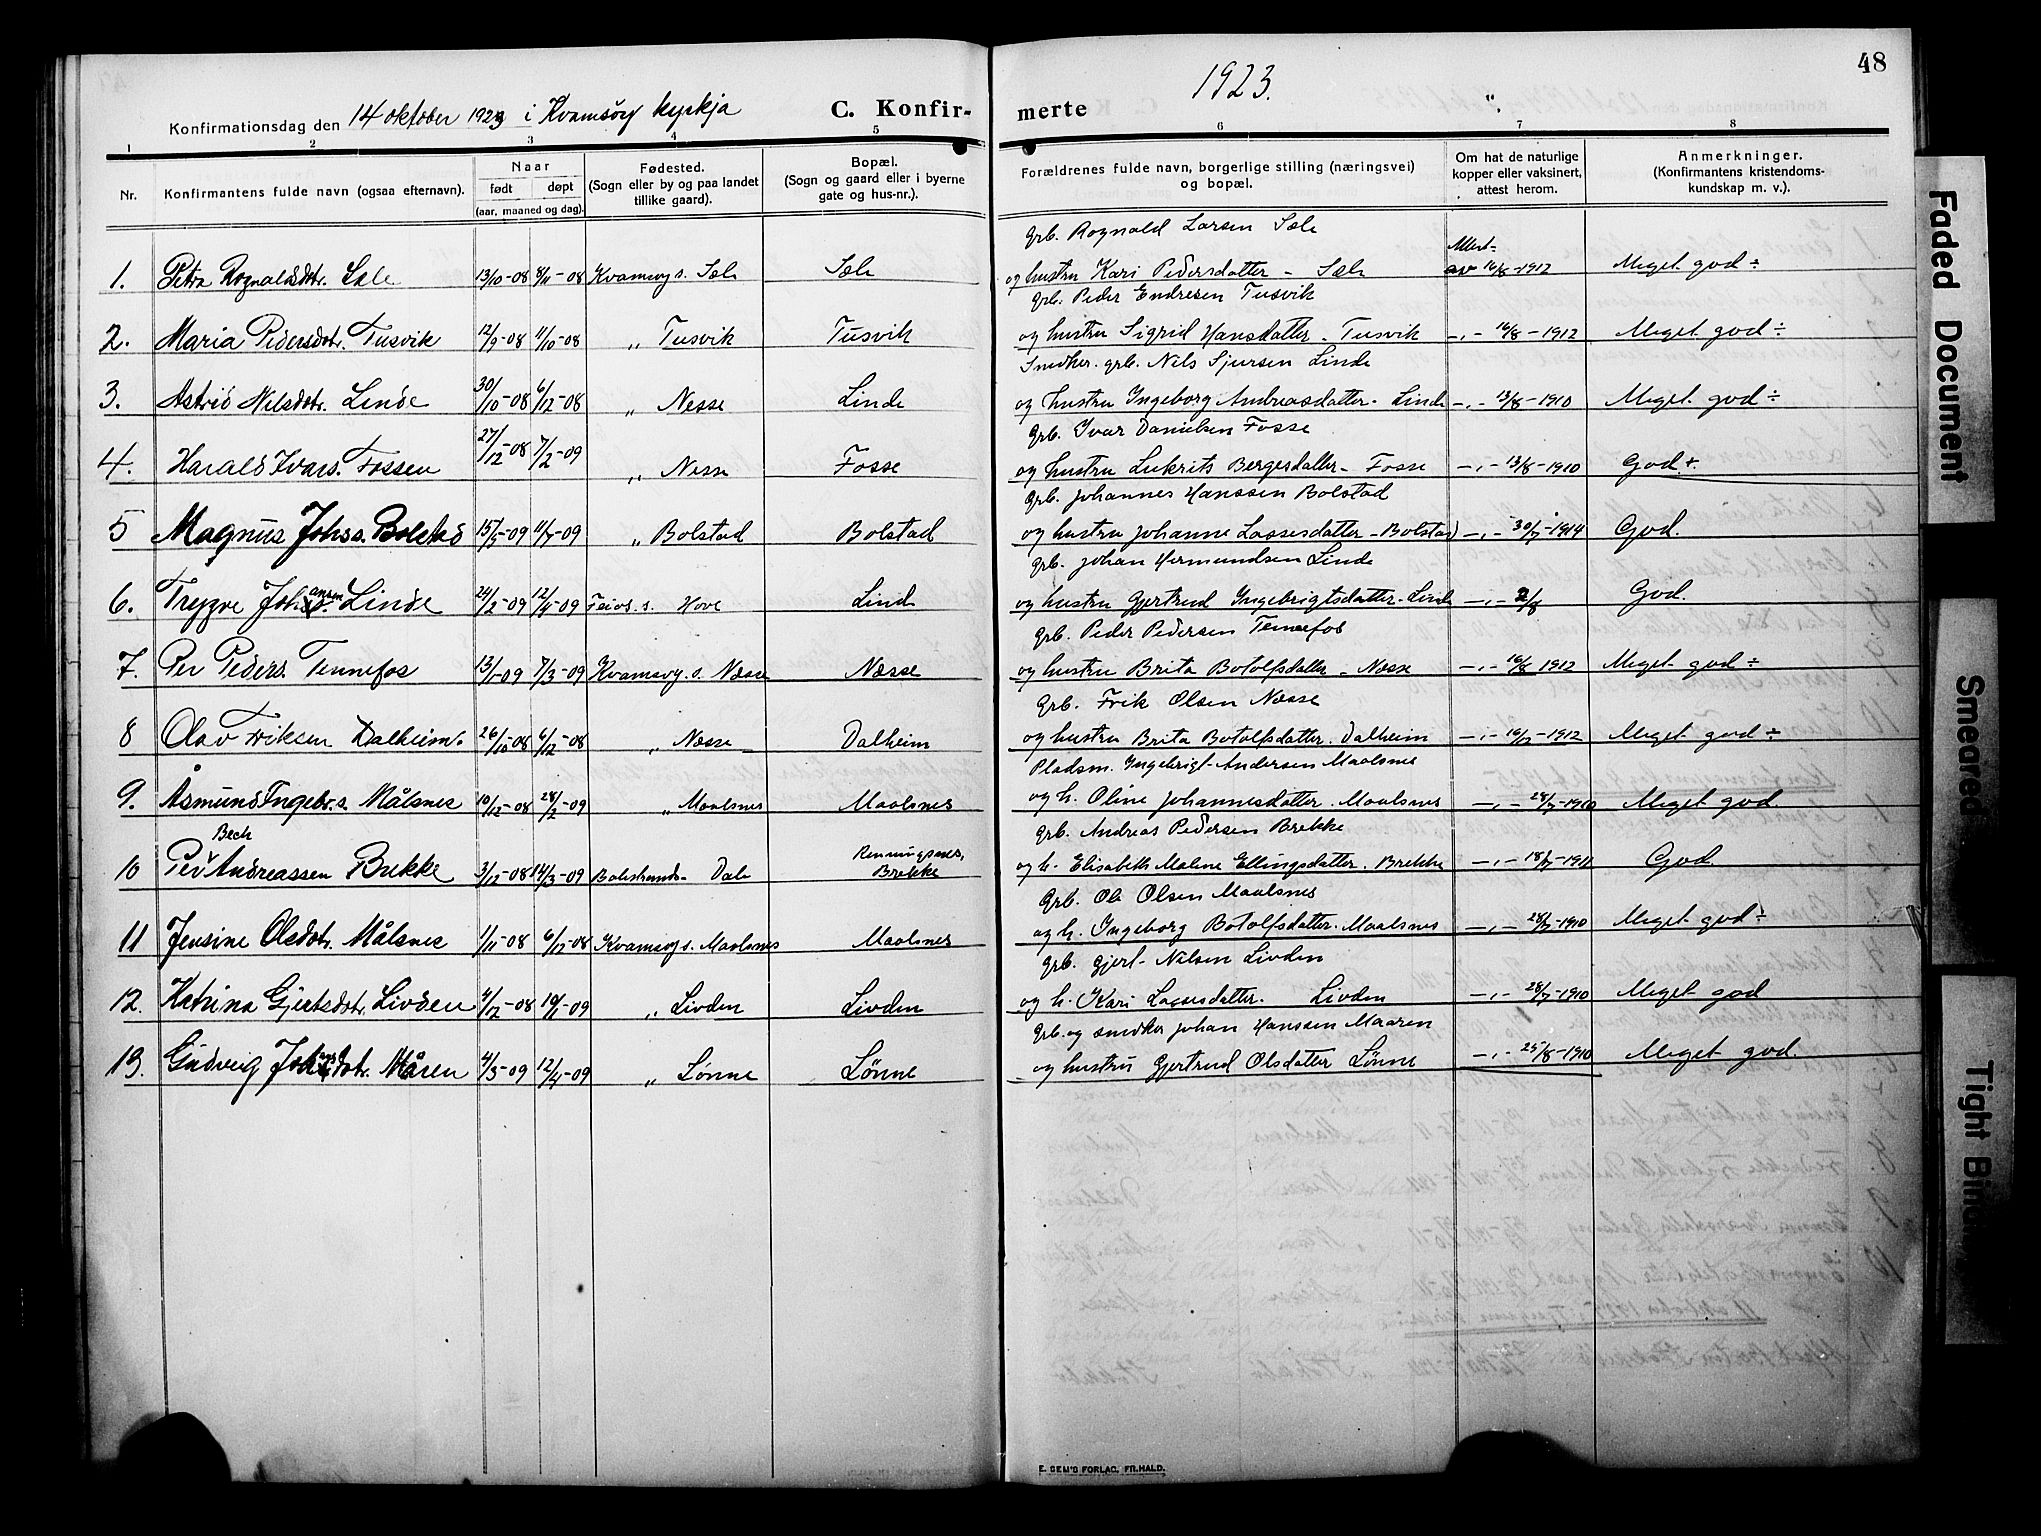 48
1923.
Konfirmationsdag den 14 oktober 1923 i Kvamsøy kyrkja
C. Konfir-
merte
"
1 2 3 4 5 6 7 8
Nr.
Konfirmantens fulde navn (ogsaa efternavn).
Naar
født døpt
(aar, maaned og dag).
Fødested.
(Sogn eller by og paa landet
tillike gaard).
Bopæl.
(Sogn og gaard eller i byerne
gate og hus-nr.).
Forældrenes fulde navn, borgerlige stilling (næringsvei)
og bopæl.
Om hat de naturlige
kopper eller vaksinert,
attest herom.
Anmerkninger.
(Konfirmantens kristendoms-
kundskap m. v.).
grb. Rognald Larsen Sæle
1. Petra Rognaldsdtr. Sæle 13/10-08 8/11-08 Kvamsøy s. Sæle Sæle og hustru Kari Pedersdatter - Sæle Attest av 16/8-1912 Meget god ÷
grb. Peder Endresen Tusvik
2. Maria Pedersdotr. Tusvik 12/9-08 11/10-08 „ Tusvik Tusvik og hustru Sigrid Hansdatter - Tusvik -„- 16/8-1912 Meget god ÷
Snedker. grb. Nils Sjursen Linde
3. Astrid Nilsdotr. Linde 30/10-08 6/12-08 „ Nesse Linde og hustru Ingeborg Andreasdatter - Linde -„- 13/8-1910 Meget god ÷
Grb. Ivar Danielsen Fosse
4. Harald Ivars. Fossen 27/12-08 7/2-09 „ Nesse Fosse og hustru Lukrits Bergesdatter - Fosse -„- 13/8-1910 God ÷.
Grb. Johannes Hanssen Bolstad
5 Magnus Johs s. Bolstad 15/5-09 11/7-09 „ Bolstad Bolstad og hustru Johanne Lassesdatter - Bolstad -„- 30/7-1914 God.
grb. Johan Hermundsen Linde
6. Trygve Johansen Linde 24/2-09 12/4-09 Feios. s. Hove Lind og hustru Gjertrud Ingebrigtsdatter - Linde -„- 2/8 God.
grb. Peder Pedersen Tennefos
7. Per Peders. Tennefos 13/1-09 7/3-09 Kvamsøy. s. Næsse Næsse og hustru Brita Botolfsdatter - Næsse -„- 16/8 1912 Meget god ÷
grb. Frik Olsen Næsse
8 Olav Friksen Dalheim. 26/10-08 6/12-08 „ Næsse Dalheim og hustru Brita Botolfsdatter. Dalheim -„- 16/7-1912 Meget god ÷
Pladsm. Ingebrigt Andersen Maalsnes
9. Åsmund Ingebr. s. Målsnes 10/12-08 28/2-09 „ Maalsnes Maalsnes og h. Oline Johannesdatter. Maalsnes -„- 28/7-1910 Meget god.
grb. Andreas Pedersen Brekke
Bech
10 Per Andreassen Brekke 3/12-08 14/3-09 Balestrands - Dale Brekke og h. Elisabeth Maline Ellingsdatter. Brekke -„- 18/7-1911 God.
Grb. Ole Olsen Maalsnes
11 Jensine Olsdotr. Målsnes 1/11-08 6/12-08 Kvamsøy s. Maalsnes Maalsnes og h. Ingeborg Botolfsdatter. Maalsnes -„- 28/7-1910 Meget god ÷
Grb. Gjert Nilsen Livden
12. Katrina Gjertsdotr. Livden 4/12-08 10/1-09 „ Livden Livden og h. Kari Lassesdatter. Livden -„- 28/7-1910 Meget god
Grb. og smedker Johan Hanssen Maaren
13. Gudveig Johansdotr. Måren 4/3-09 12/4-09 „ Lønne Lønne og hustru Gjertrud Olsdatter Lønne -„- 25/8-1910 Meget god.
E. SEM'S FORLAG, FR.HALD.
Faded Document
Smeared
Tight Bind